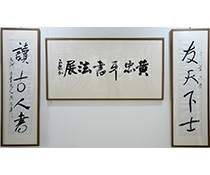 友天下士
黃忠平書法展
讀古人書